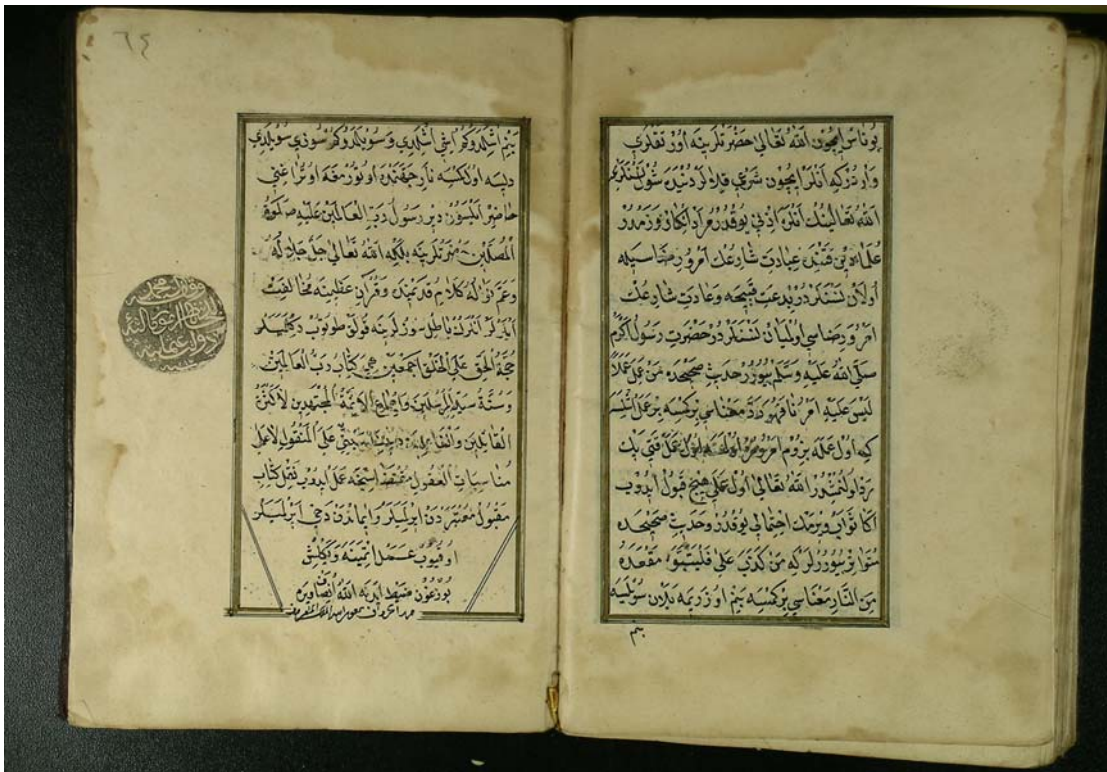 بوناس ايچون الله تعالى حضرتلرينه اوز
واردركه انلر ايچون شرعي قلدلر
الله تعالينك انلره اذني يوقدر
عبادت شارعك امر و رضاسيله
اولان نسنلردر بدعت قبيحه وعادت شارعك
امر و رضاسي اولميان نسنلردر حضرت رسول اكرم
صلى الله عليه وسلم بيورر حديث صحيحده من عمل عملا
ليس عليه امرنا فهو رد معناسي بركسه بر عمل
كه اول عمله بزوم امرومز اول عمل
رد اولنمشدر الله تعالى اول عملي هيچ قبول ايدوب
اكا ثواب ويرمك احتمالي يوقدر وحديث صحيحده
متواتر بيوررلركه من كذب علي فليتبوء مقعده
من النار معناسي بركسه بنم اوزريمه يلان سويلسه
بنم
٦٤
بنم اشلمدوكم ايشي اشلدي وسويلمدوكم سوزي سويلدي
ديسه اولكسه نار جهنمده اوتورمغه اوتراغني
حاضر ايلسون دير رسول رب العالمين عليه صلوة
المصلين حضرتلرينه بلكه الله تعالى جل جلاله
وعم نواله كلام قديمنه وقرآن عظيمنه مخالفت
ايدرلر انلرك باطل سوزلرينه قولق طوتوب دكلميلر
حجة الحق على الخلق اجمعين هي كتاب رب العالمين
وسنة سيد المرسلين واجماع الائمة المجتهدين لا كثرة
القائلين والفاعلين على المنقول لا على
مناسبات العقول مقتضاسنجه عمل ايدوب نقل كتاب
مقبول معتبردن ايرلميلر وايماندن دخي ايرلميلر
اوقيوب عمل اتمينه
الله انصاف ويره